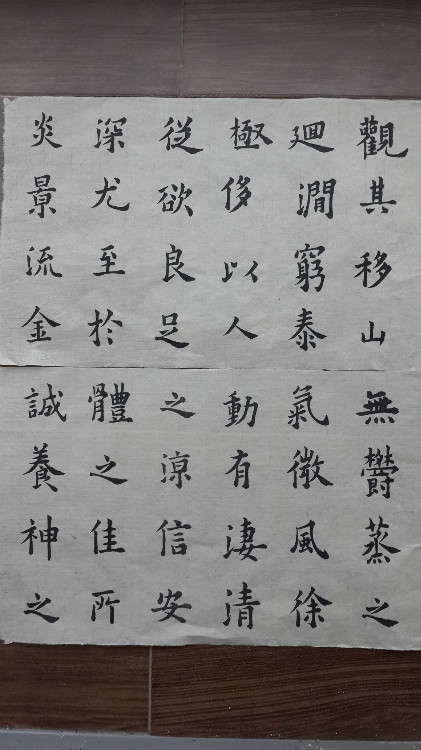 觀其移山
廻澗窮泰
極侈以人
從欲良足
深尤至於
炎景流金
無欝蒸之
氣微風徐
動有淒清
之涼信安
體之佳所
誠養神之